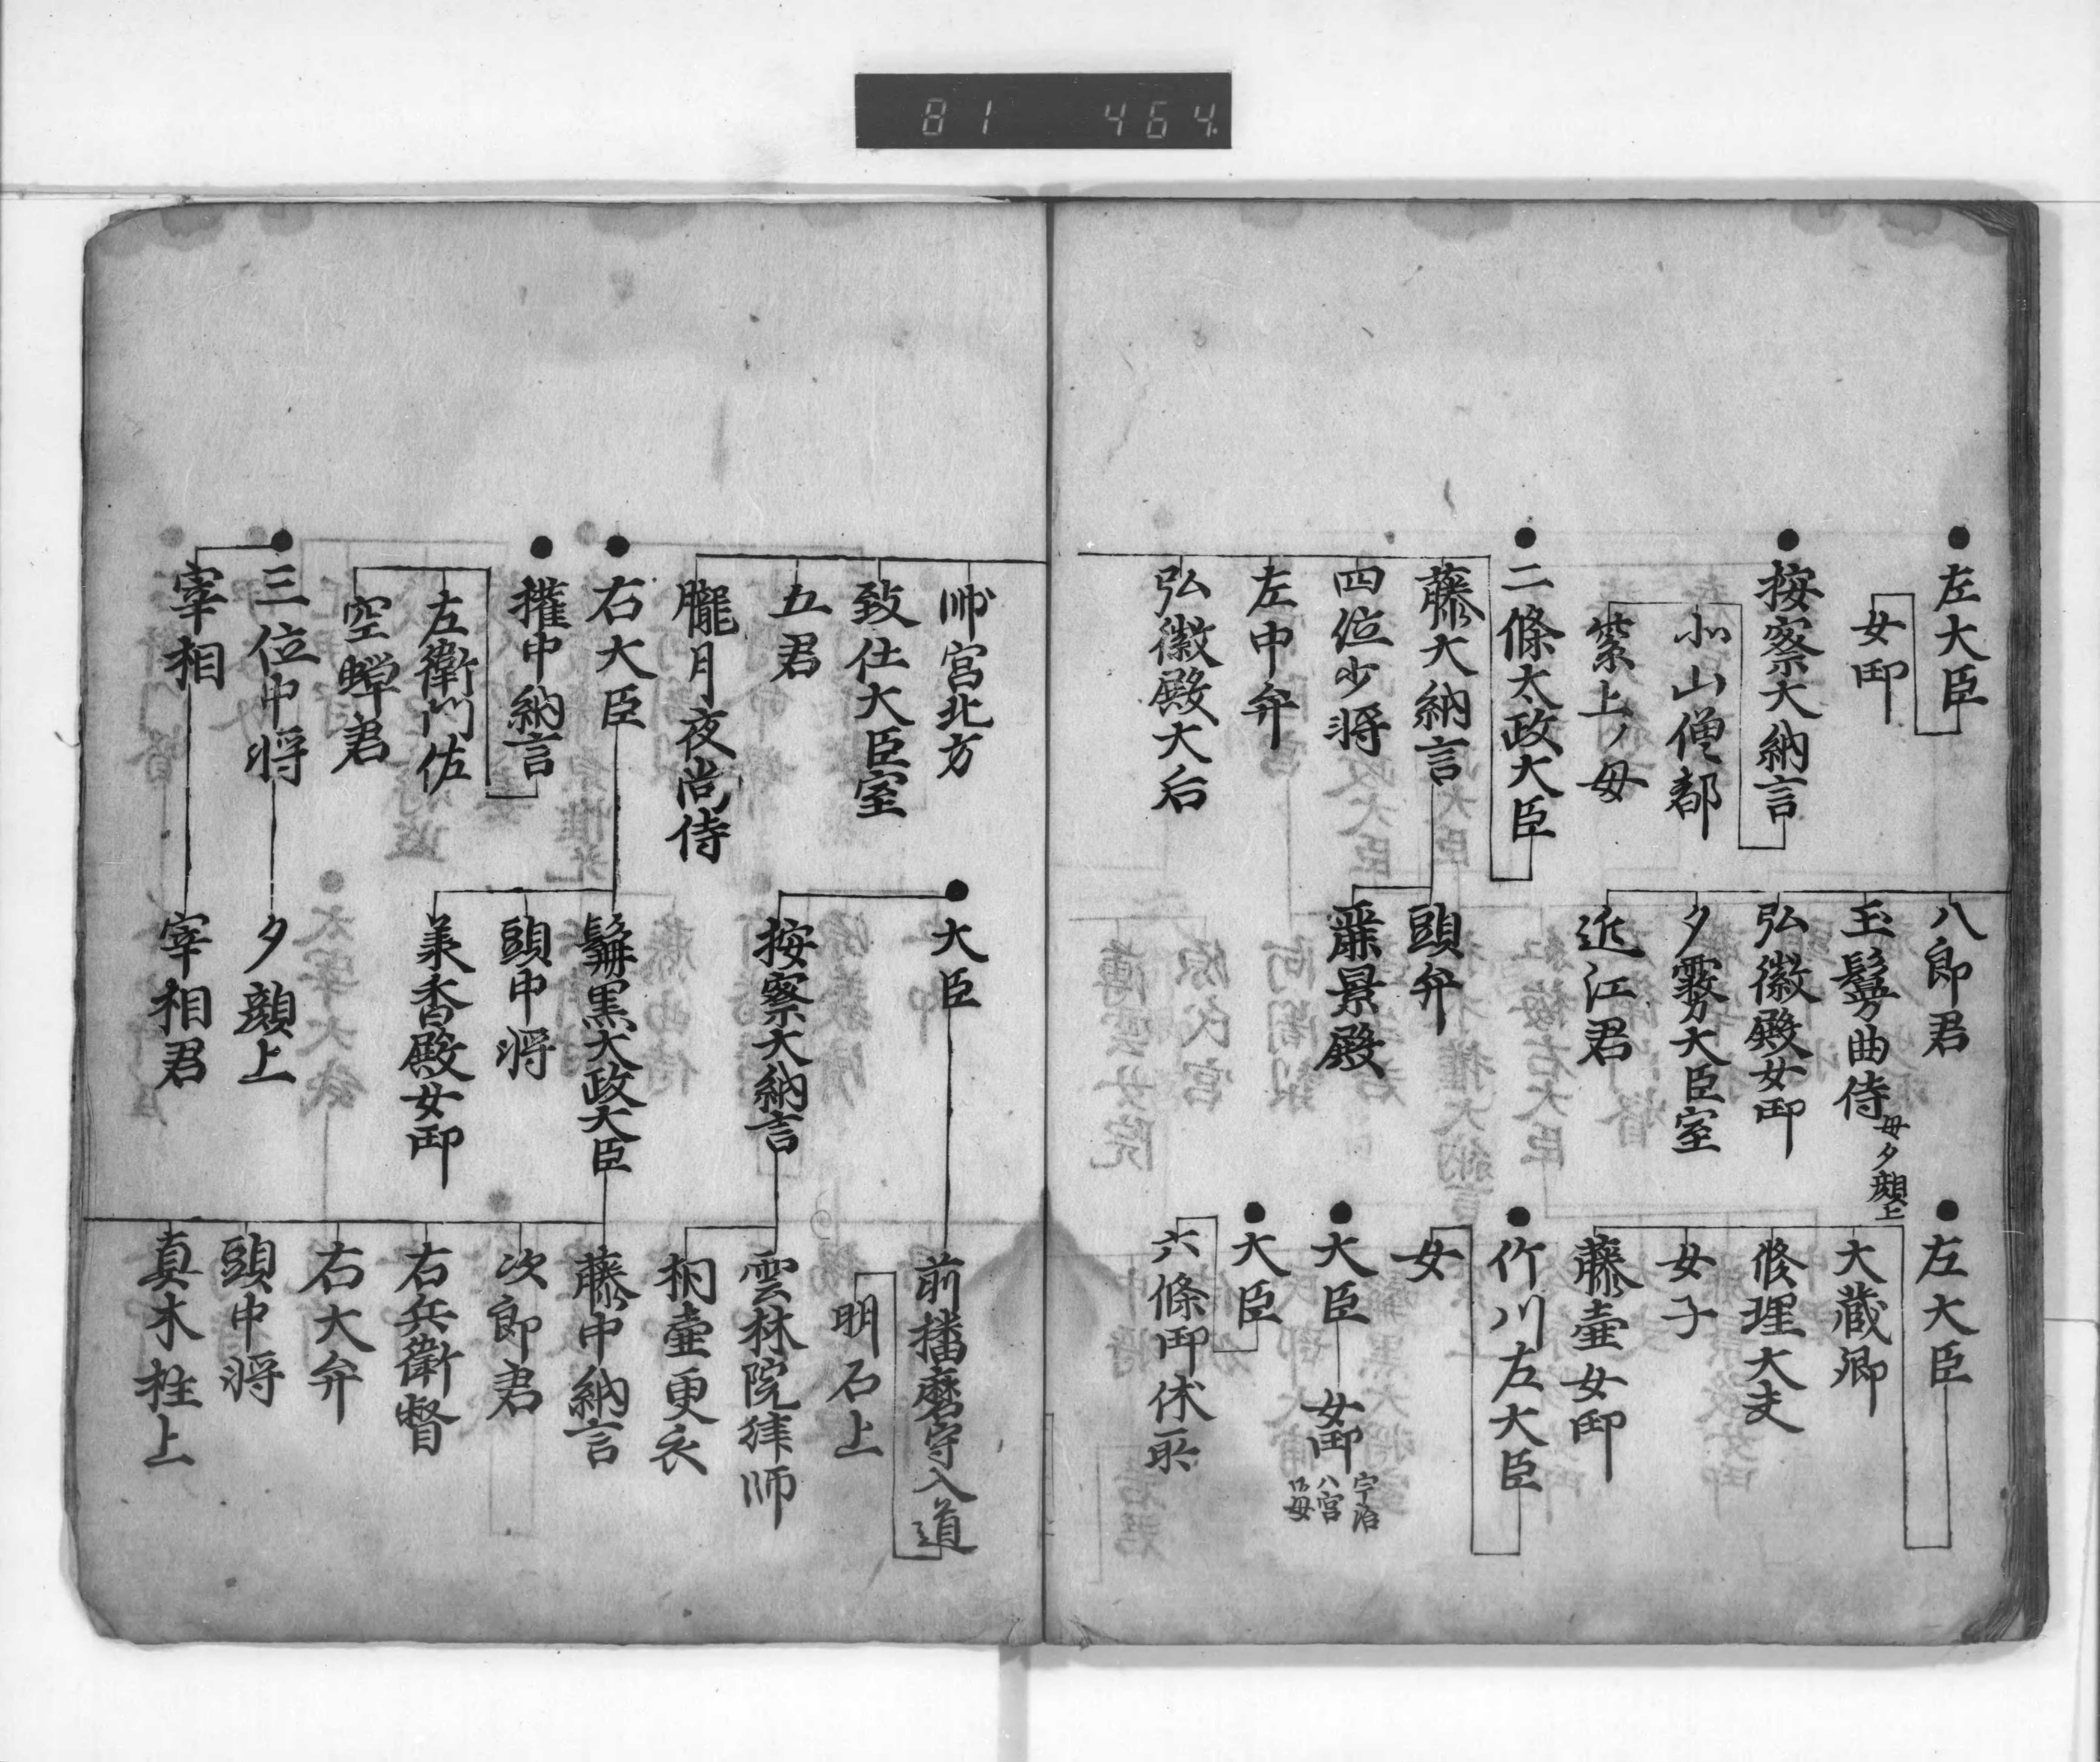 81 464
左大臣
女御
按察大納言
北山僧都
紫上ノ母
二條太政大臣
藤大納言
四位少将
左中弁
弘徽殿大后
八郎君
玉鬘尚侍
母夕顔上
弘徽殿女御
夕霧大臣室
近江君
頭弁
麗景殿
左大臣
大蔵卿
修理大夫
女子
藤壷女御
竹川左大臣
女
大臣
女御
宇治
八宮
御母
大臣
六條御休所
帥宮北方
致仕大臣室
五君
朧月夜尚侍
右大臣
権中納言
左衛門佐
空蝉君
三位中将
宰相
大臣
按察大納言
鬚黒太政大臣
頭中将
承香殿女御
夕顔上
宰相君
前播磨守入道
明石上
雲林院律師
桐壷更衣
藤中納言
次郎君
右兵衛督
右大弁
頭中将
真木柱上